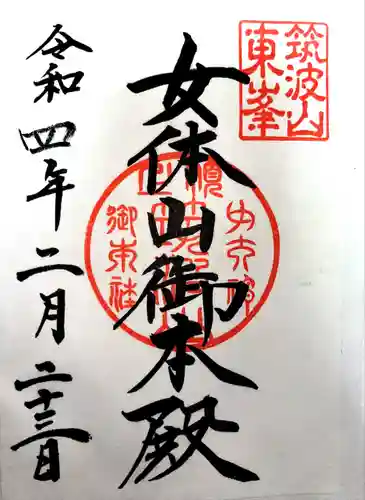 筑波山
東峯
女体山御本殿
令和四年二月二十三日